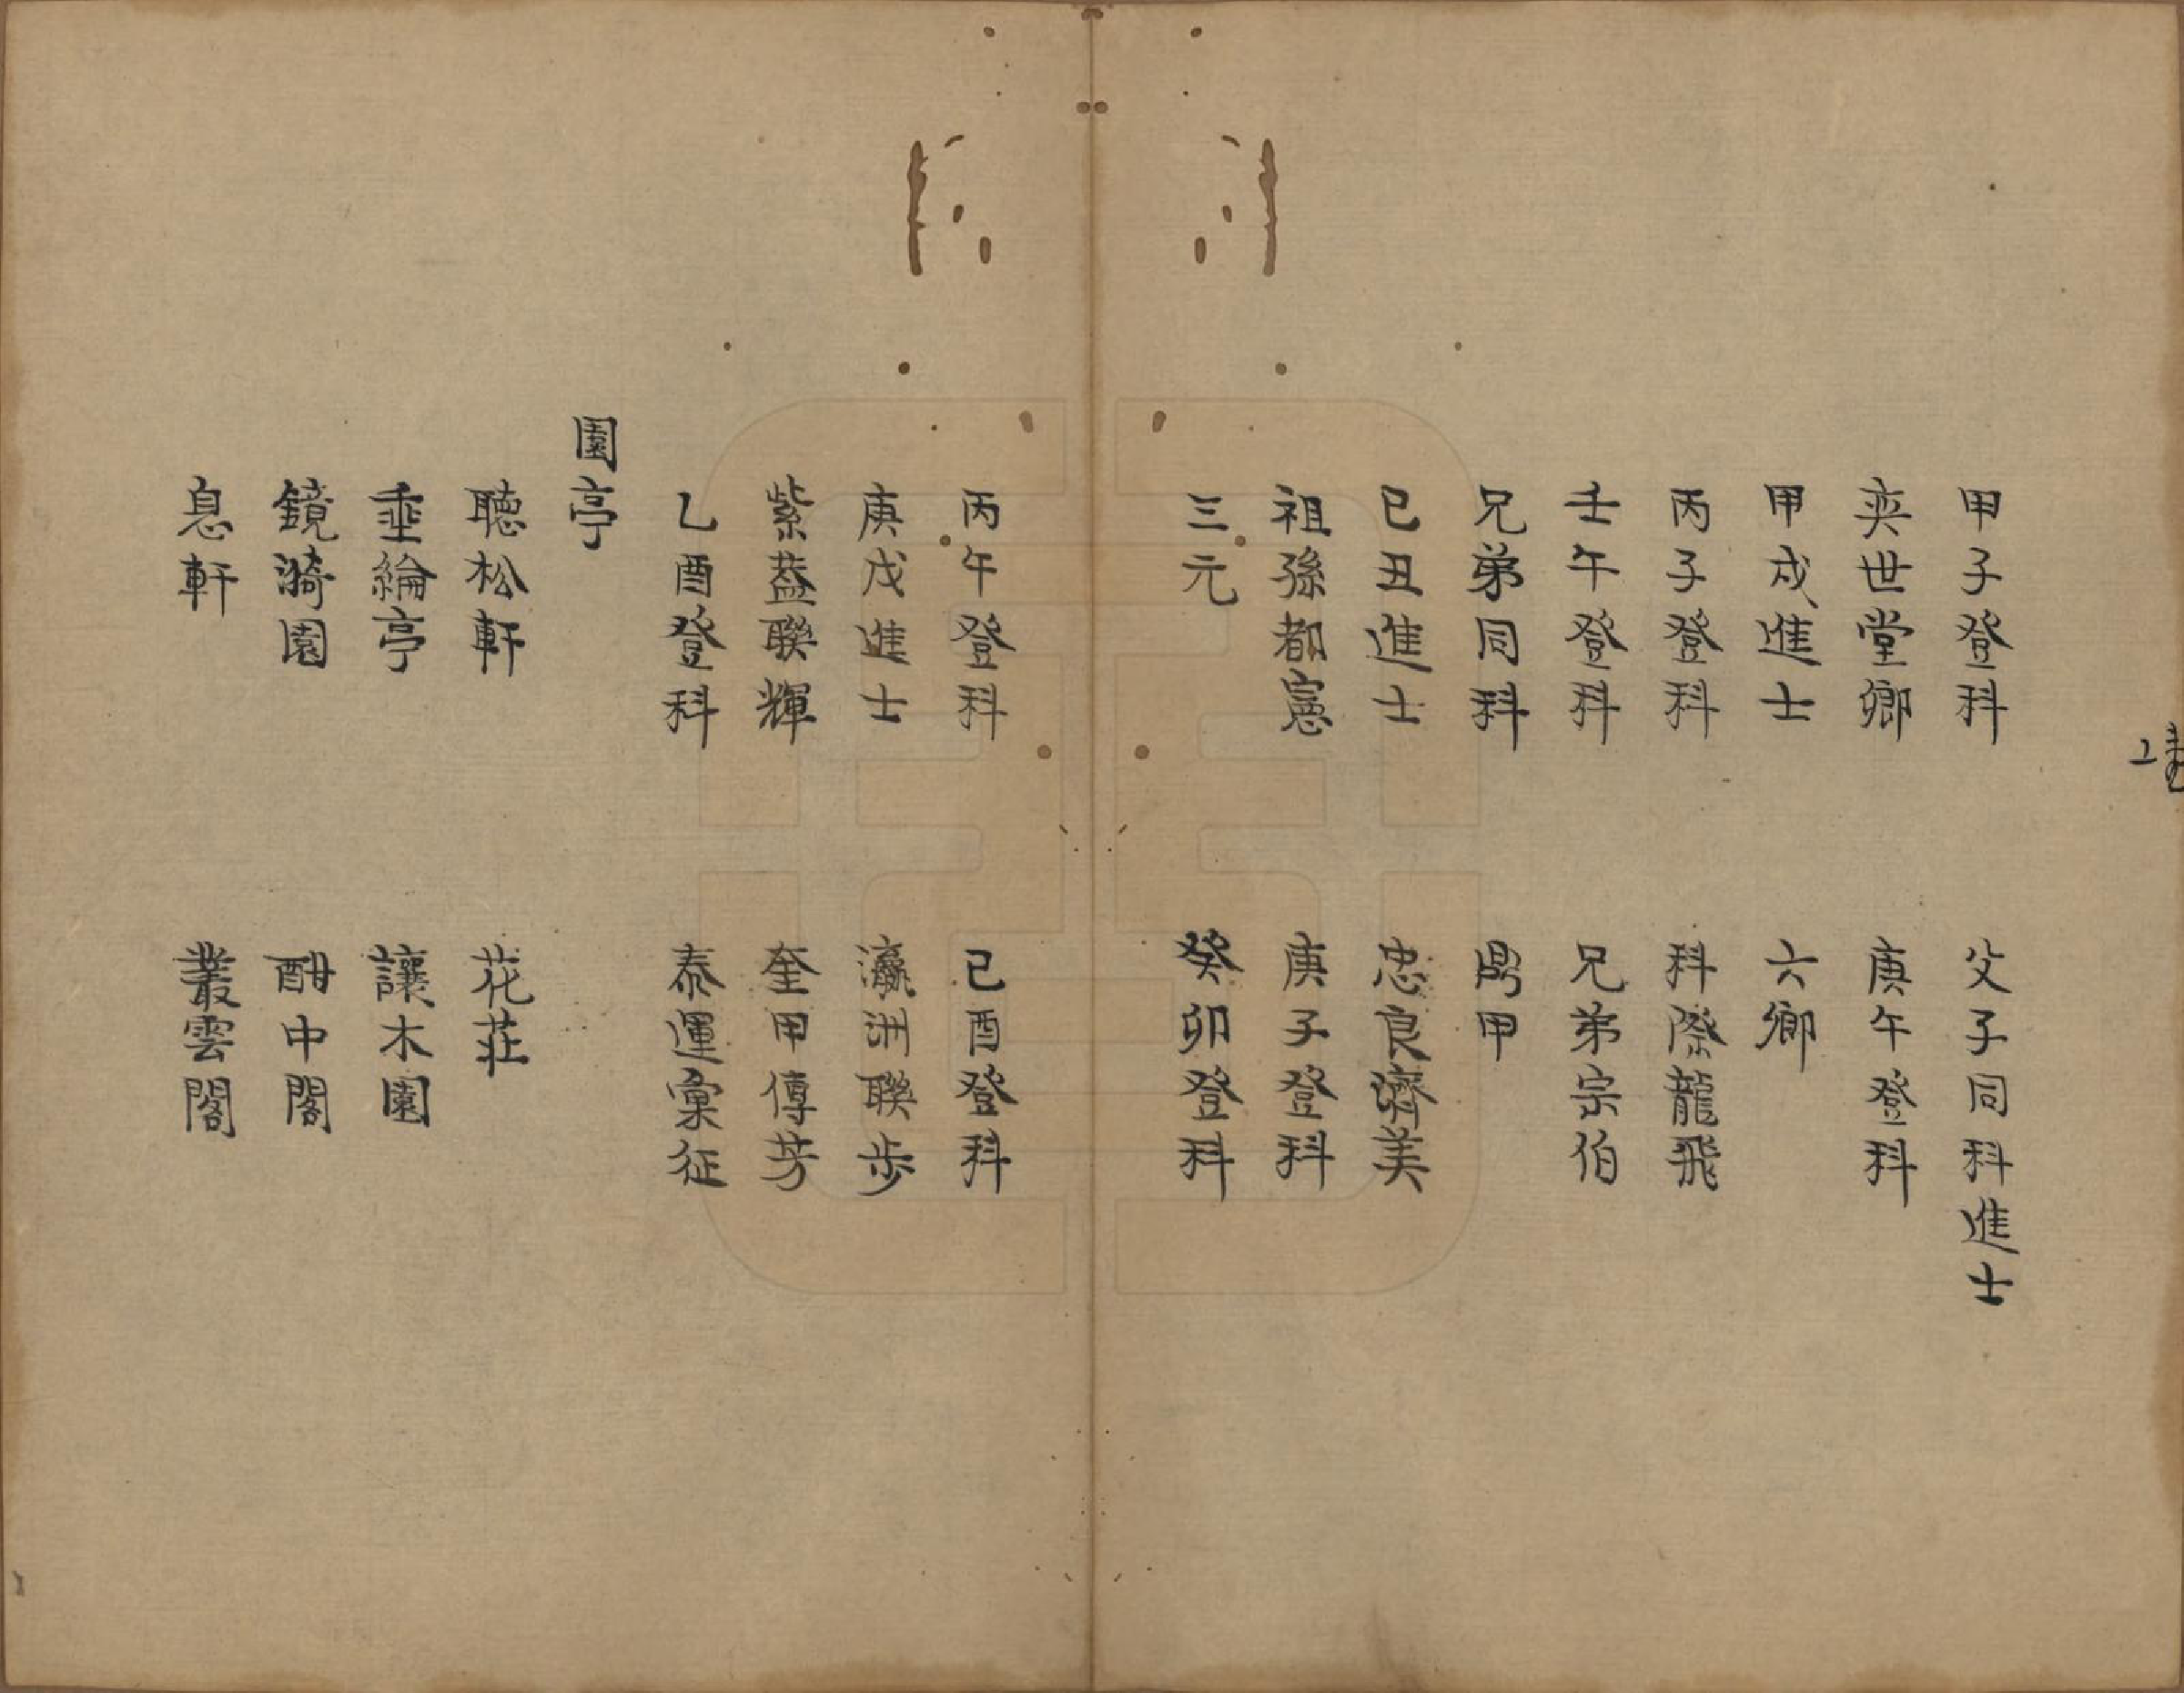 甲子登科　父子同科進士
奕世堂卿　庚午登科
甲戌進士　六卿
丙子登科　科際龍飛
壬午登科　兄弟宗伯
兄弟同科　鼎甲
巳丑進士　忠良濟美
祖孫都憲　庚子登科
三元　癸卯登科
丙午登科　己酉登科
庚戌進士　瀛洲聯步
紫蓋聯輝　奎甲傳芳
乙酉登科　泰運彙征
園亭
聽松軒　花莊
垂綸亭　讓木園
鏡漪園　酣中閣
息軒　叢雲閣